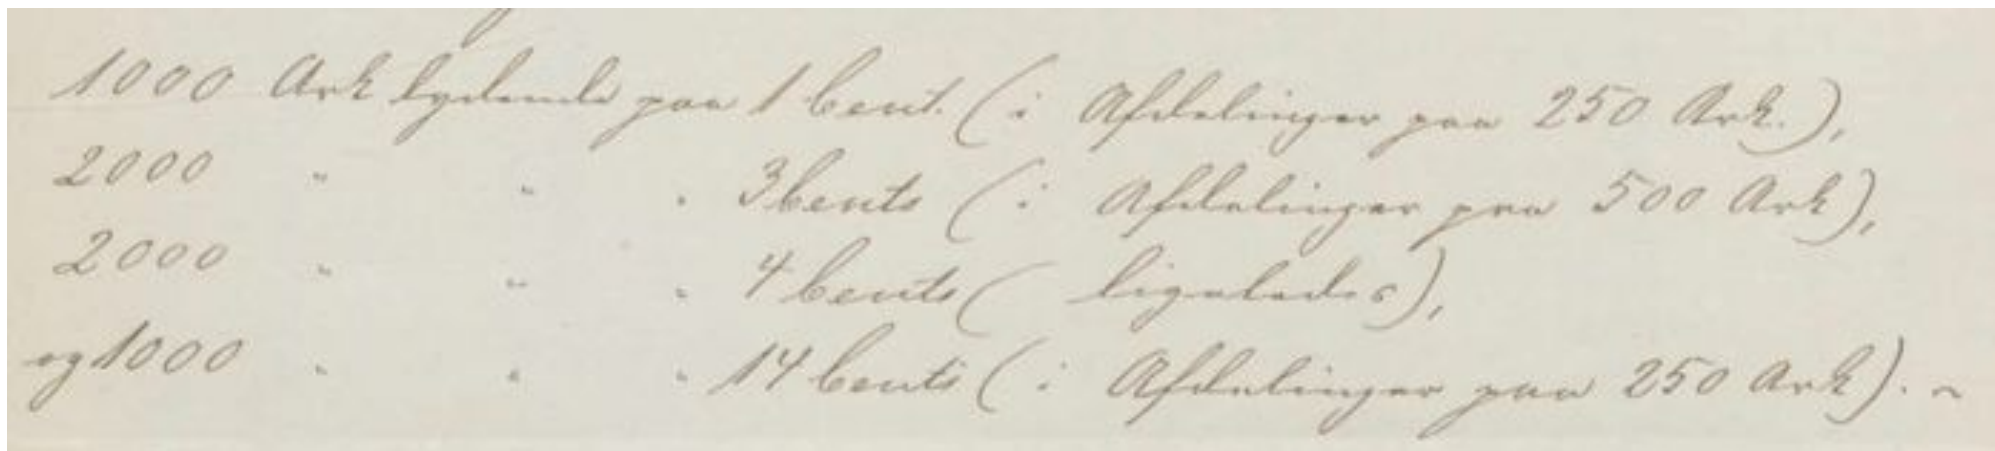 1000 Ark lydende paa 1 Cent. (i Afdelinger paa 250 Ark.),
2000 " " " 3 Cents (i Afdelinger paa 500 Ark),
2000 " " " 4 Cents ( ligeledes),
og 1000 " " " 14 Cents (i Afdelinger paa 250 Ark). ~